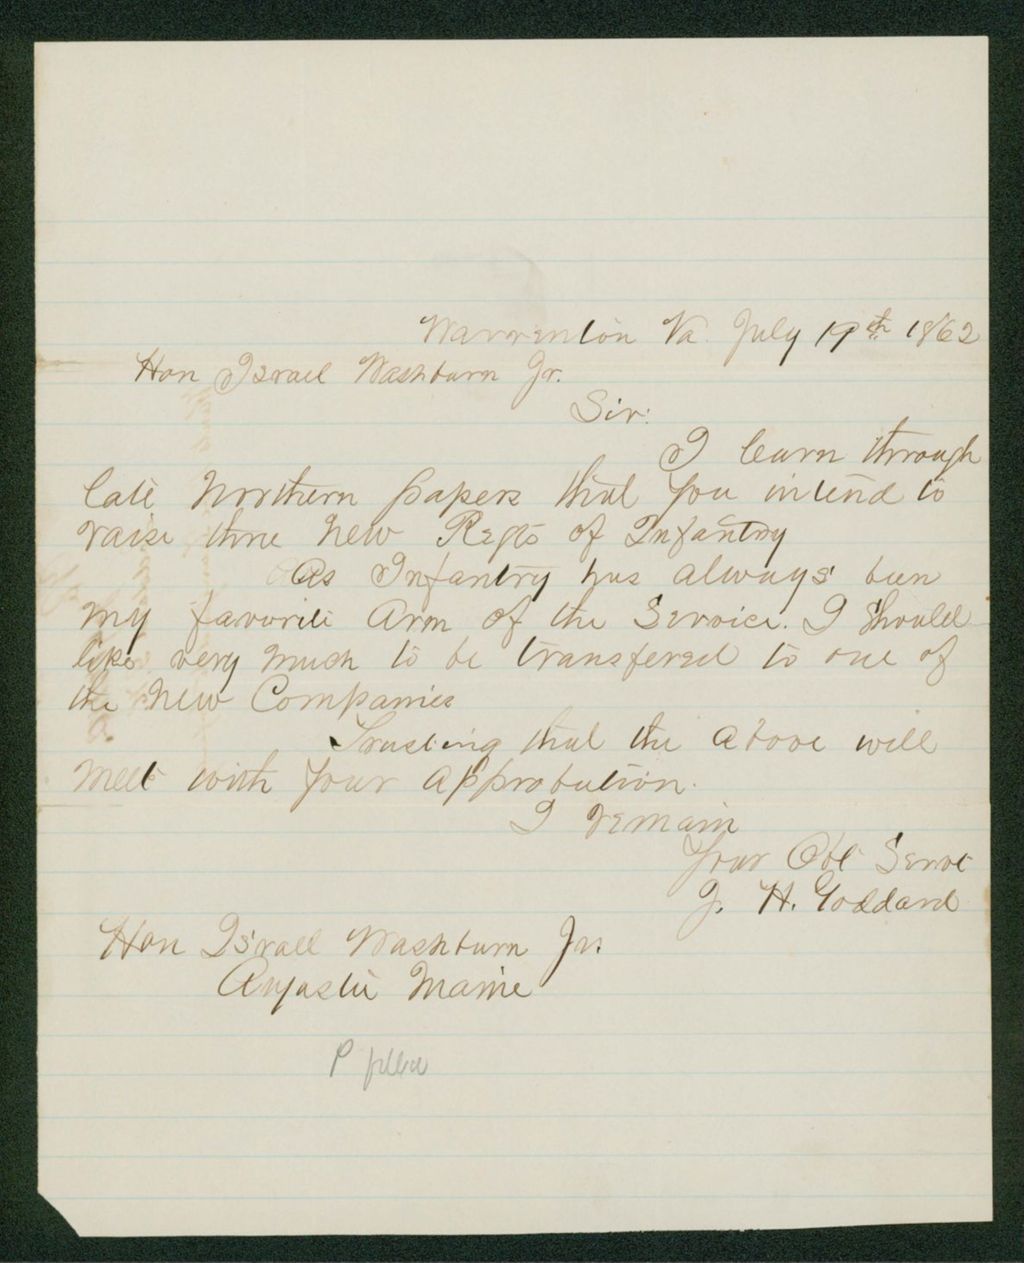 Warrenton Va. July 19th 1862
Hon Israel Washburn Jr.
Sir:
I learn through
late Northern papers that you intend to
raise three New Regts of Infantry
As Infantry has always been
my favorite Arm of the Service. I Should
like very much to be transfered to one of
the New Companies
Trusting that the above will
meet with your approbation.
I remain
Your Obt Servt
J. H. Goddard
Hon Israel Washburn Jr.
Augusta Maine